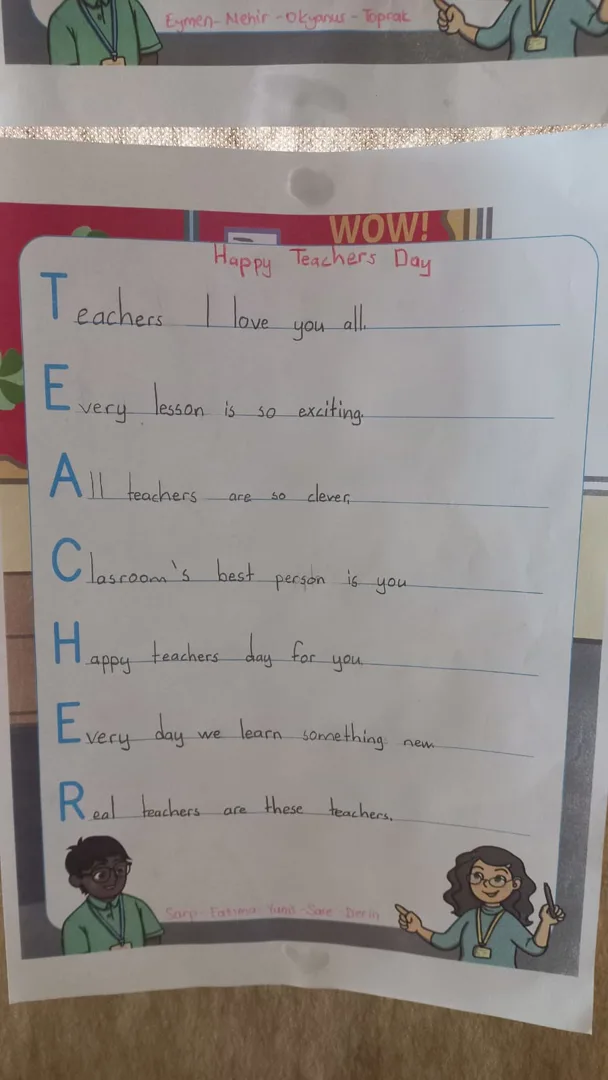 Eymen - Nehir - Okyanus - Toprak
WOW!
Happy Teachers Day
Teachers I love you all.
Every lesson is so exciting.
All teachers are so clever.
Clasroom's best person is you
Happy teachers day for you
Every day we learn something new.
Real teachers are these teachers.
Fatima Derin